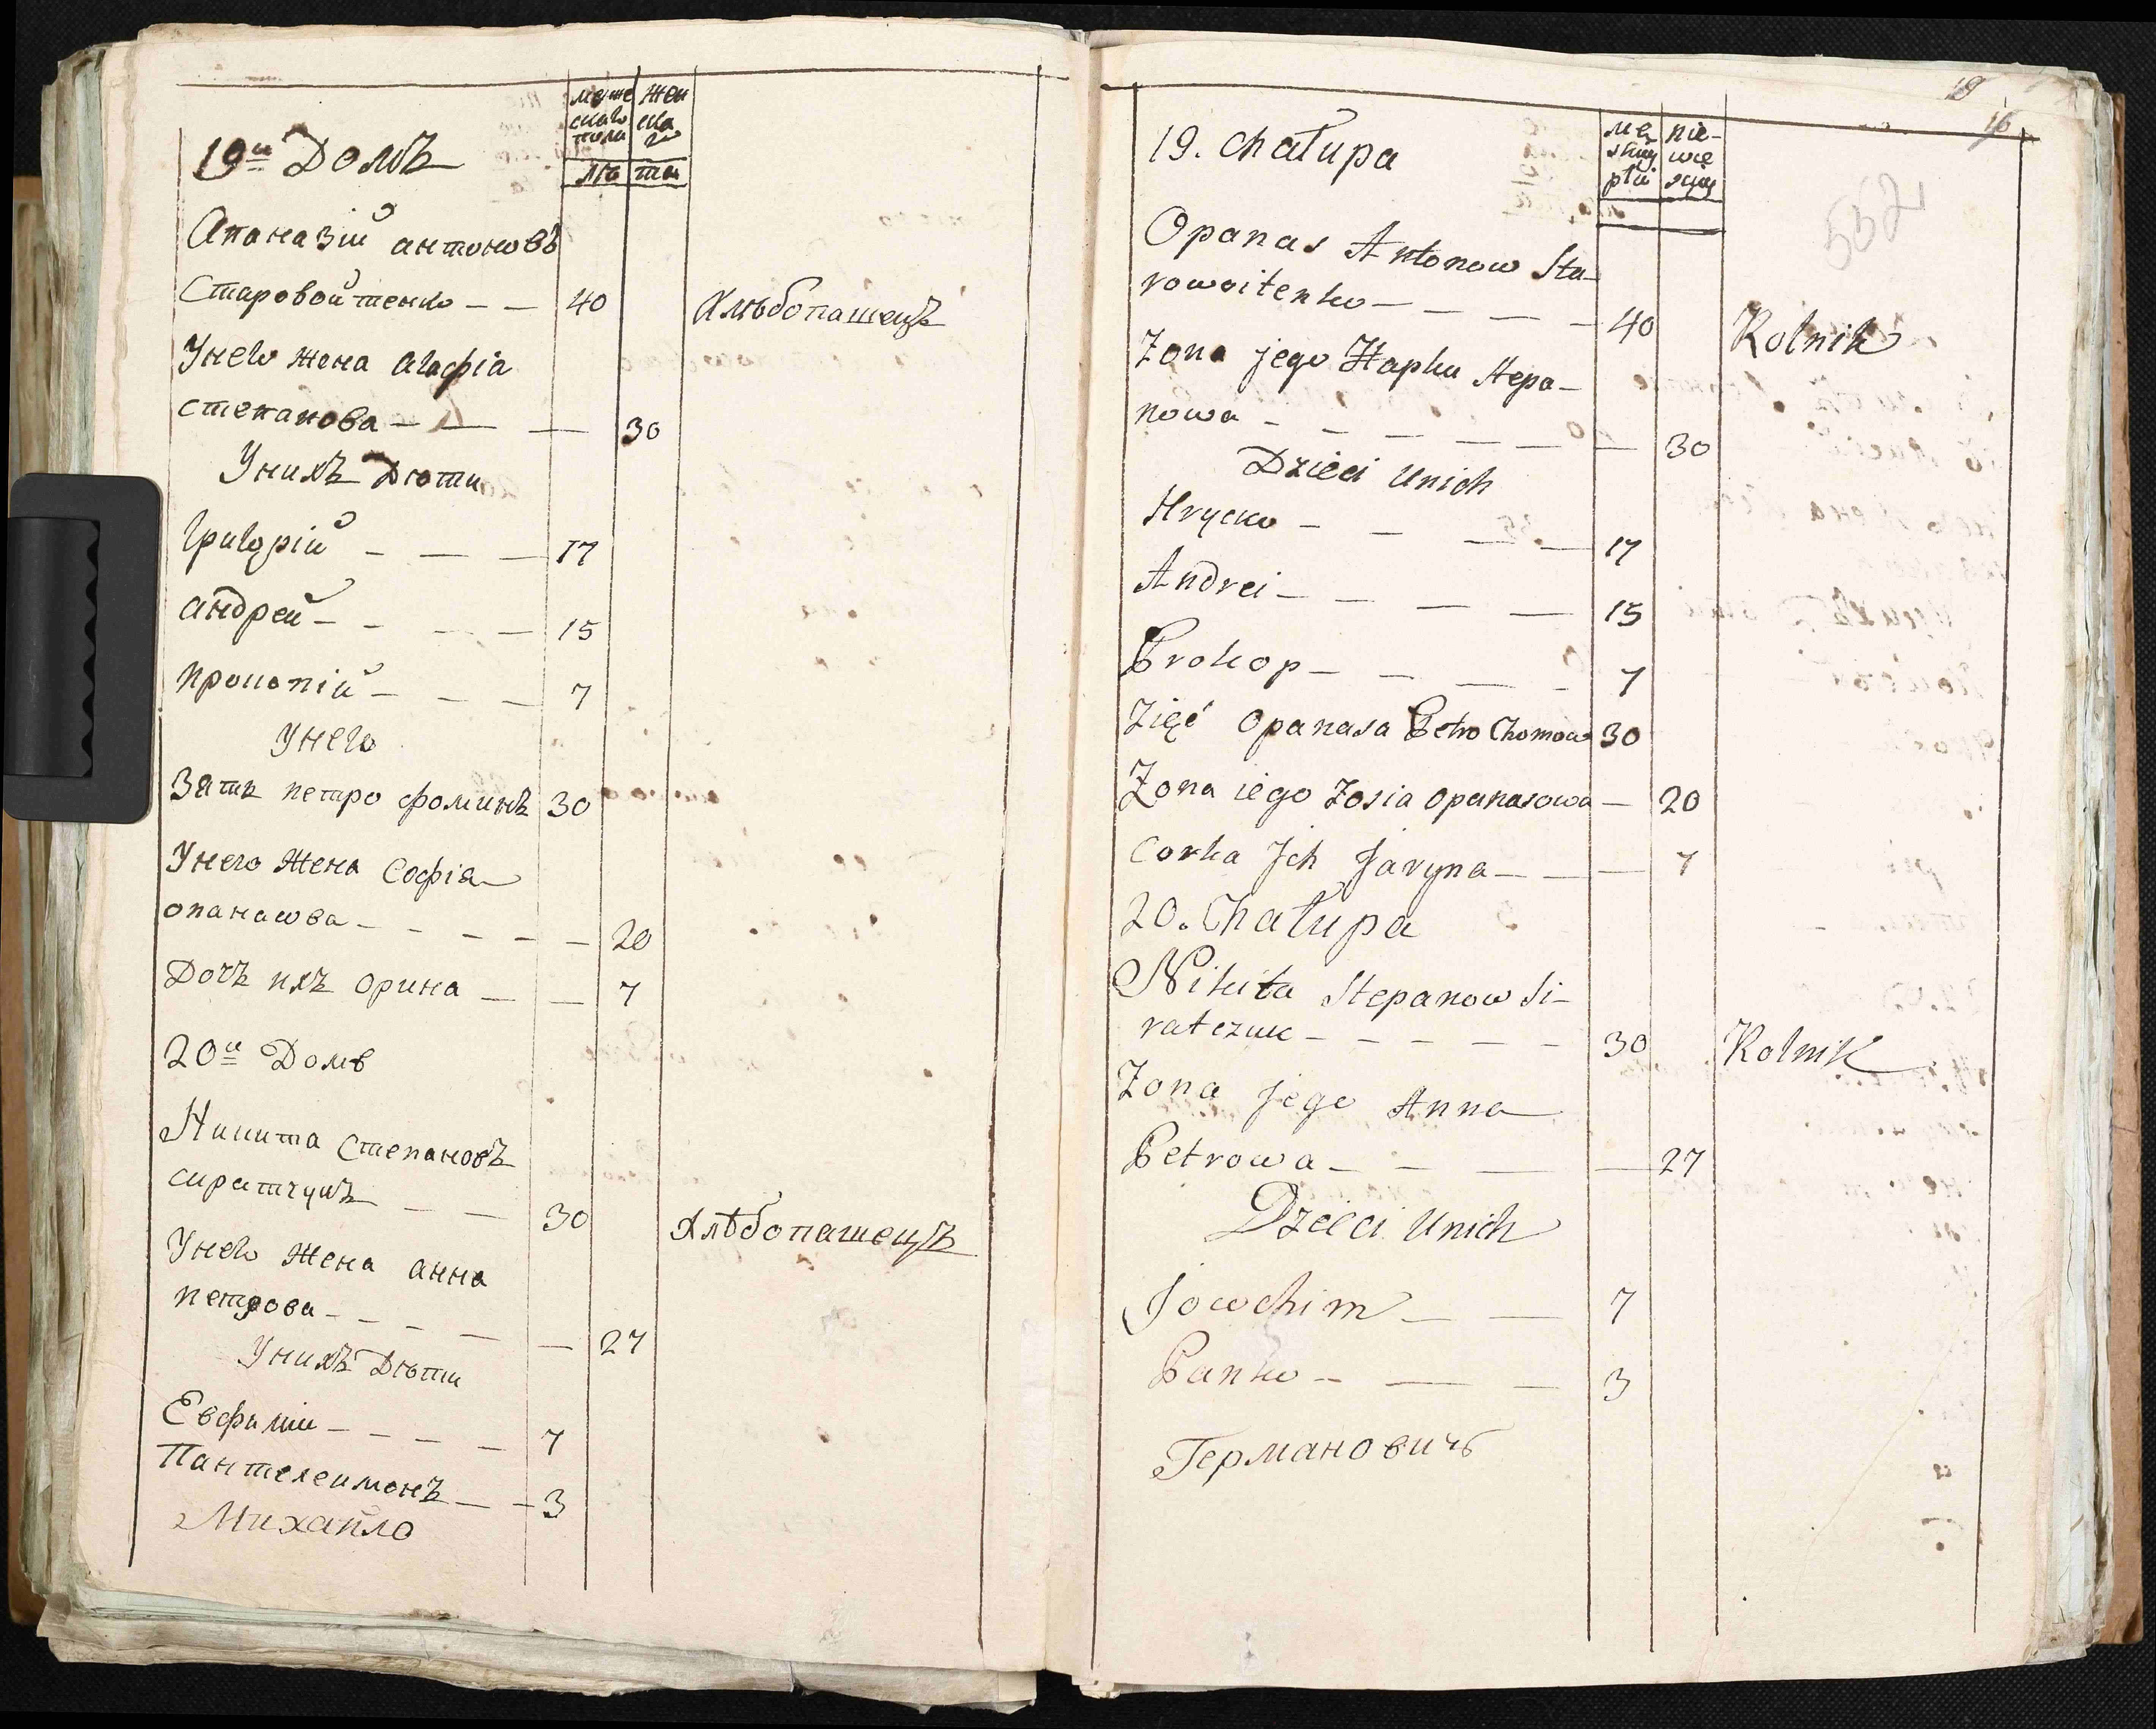 муже жен
скаго ска
пола го
лѣ та
19й Домъ
Апаназій антоновъ
Старовойтенко - - 40 Хлѣбопашецъ
Унего жена агафіа
степанова - - - 30
Унихъ Дѣти
григорій - - - 17
андрей - - - - 15
прокопій - - - 7
Унего
Зять петро фоминъ 30
Унего жена Софія
опанасова - - - - - 20
Дочъ ихъ орина - - 7
20й Домъ
Никита Степановъ
сиратчукъ - - 30 Хлѣбопашецъ
Унего жена анна
петрова - - - - - 27
Унихъ Дѣти
Евфимій - - - - 7
Пантелеимонъ - - 3
Михайло
19
16
562
19. chałupa
mę nie-
skiey wie
płci sciey
Opanas Antonow Sta-
rowoitenko - - - - 40 Rolnik
Zona jego Hapka Stepa-
nowa - - - - - - - 30
Dzieci Unich
Hrycko - - - - 17
Andrei - - - - 15
Prokop - - - - 7
Zięć Opanasa Petro Chomow 30
Zona iego Zosia Opanasowa - 20
Corka Jch Jaryna - - - 7
20. Chałupa
Nikita Stepanow Si-
ratczuk - - - - - 30 Rolnik
Zona jego Anna
Petrowa - - - - 27
Dzieci Unich
Jowchim - - 7
Panko - - - 3
Германовичъ